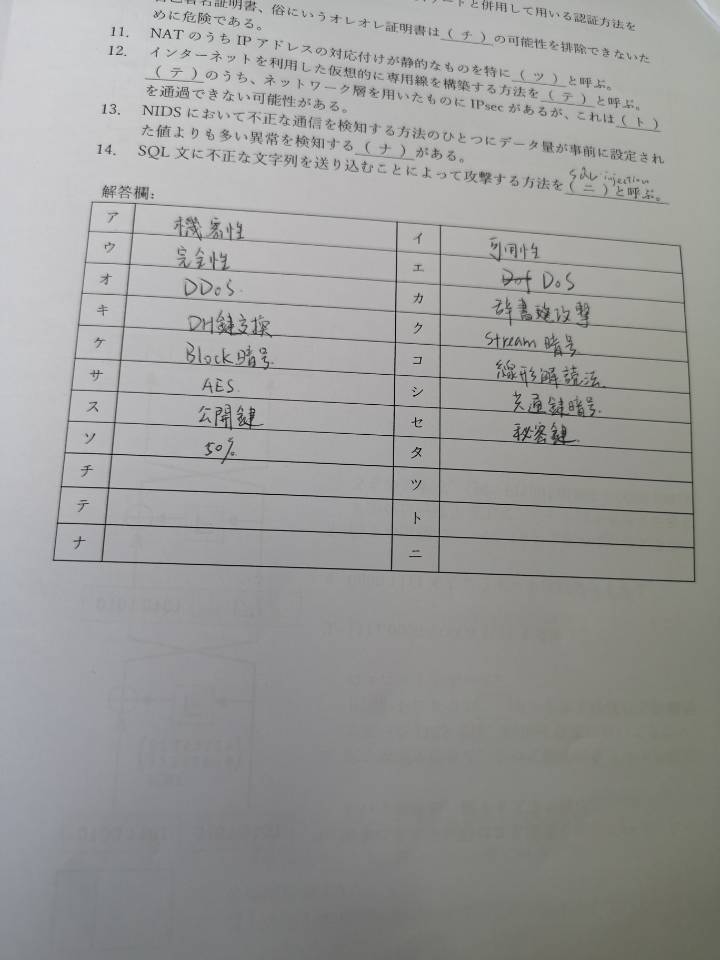 ートと併用して用いる認証方法を
自己署名証明書、俗にいうオレオレ証明書は（チ）の可能性を排除できないた
めに危険である。
11. NATのうちIPアドレスの対応付けが静的なものを特に（ツ）と呼ぶ。
12. インターネットを利用した仮想的に専用線を構築する方法を（テ）と呼ぶ。
（テ）のうち、ネットワーク層を用いたものにIPsecがあるが、これは（ト）
を通過できない可能性がある。
13. NIDSにおいて不正な通信を検知する方法のひとつにデータ量が事前に設定され
た値よりも多い異常を検知する（ナ）がある。
sql injection
14. SQL文に不正な文字列を送り込むことによって攻撃する方法を（ニ）と呼ぶ。
解答欄：
ア 機密性 イ 可用性
ウ 完全性 エ DoS
オ DDoS. カ 辞書攻撃
キ DH鍵交換 ク Stream暗号
ケ Block暗号. コ 線形解読法
サ AES. シ 共通鍵暗号.
ス 公開鍵 セ 秘密鍵
ソ 50% タ
チ ツ
テ ト
ナ ニ